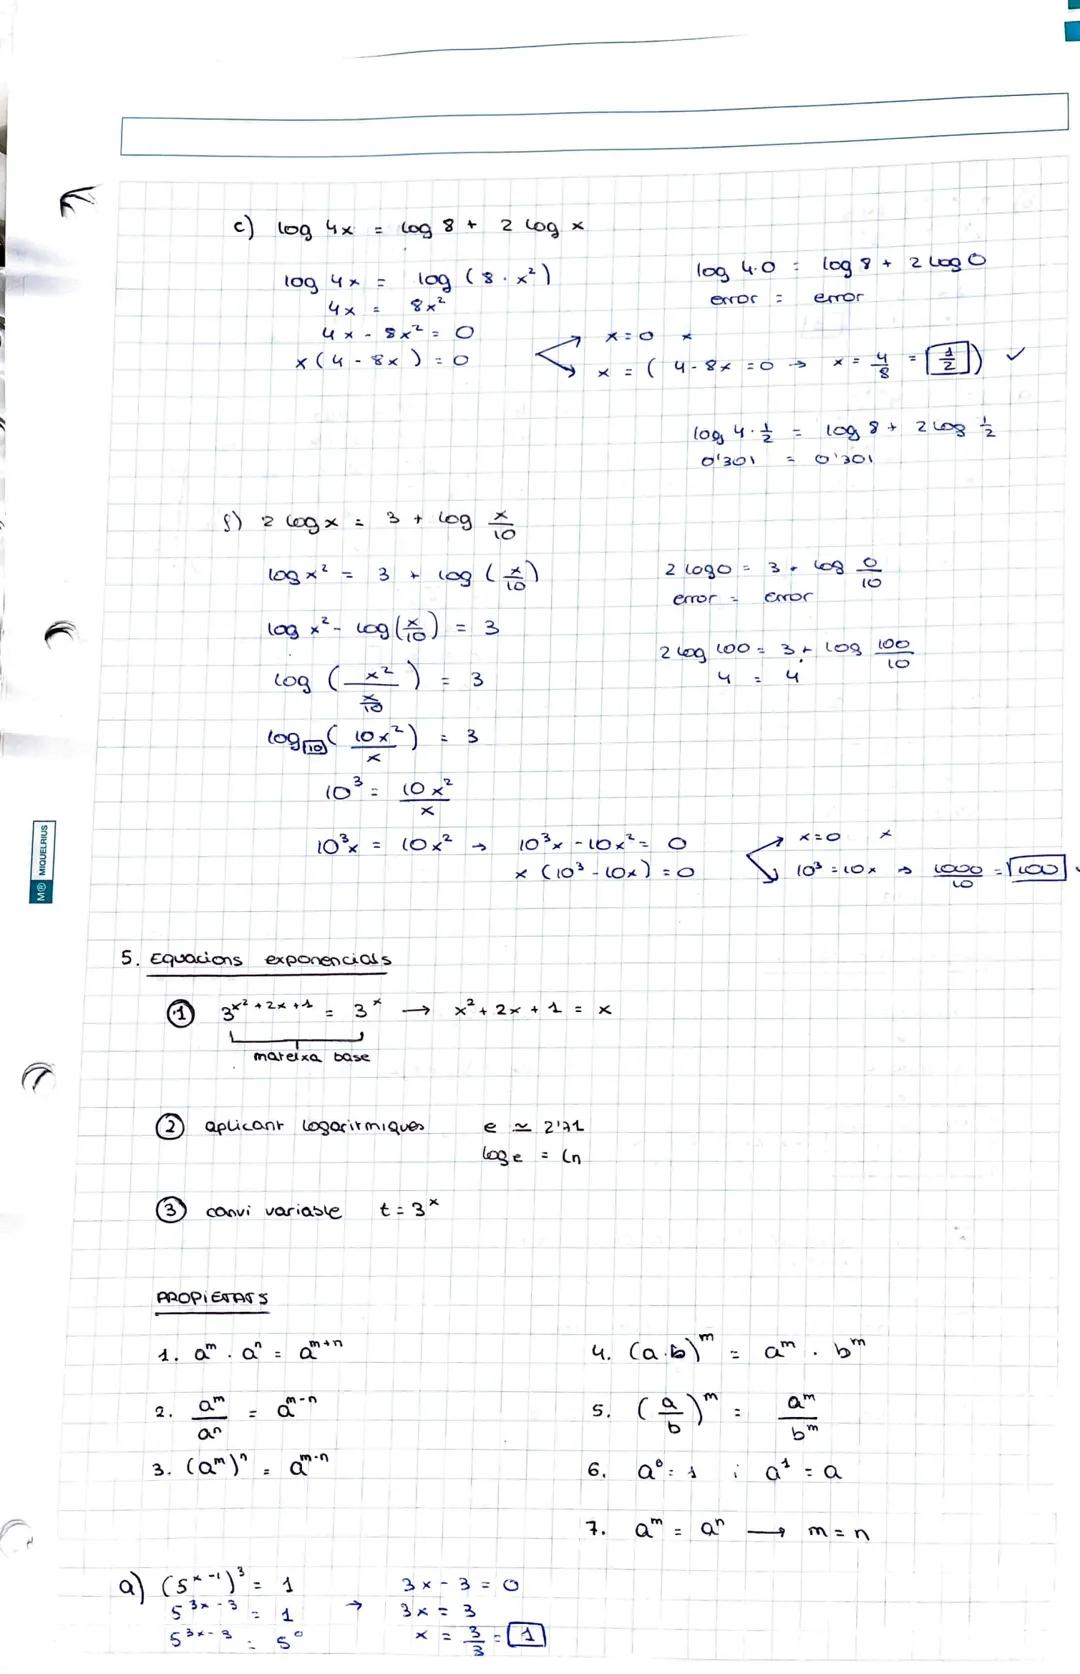 c) log 4x = log 8 + 2 log x
log 4x = log (8 · x²)
4x = 8x²
4x - 8x² = 0
x (4 - 8x) = 0
x = 0 ×
x = ( 4 - 8x = 0 → x = 4/8 = 1/2 ) ✓
log 4·0 = log 8 + 2 log 0
error = error
log 4 · 1/2 = log 8 + 2 log 1/2
0'301 = 0'301
f) 2 log x = 3 + log x/10
log x² = 3 + log (x/10)
log x² - log (x/10) = 3
log (x² / (x/10)) = 3
log₁₀ (10x²/x) = 3
10³ = 10x²/x
10³x = 10x² → 10³x - 10x² = 0
x (10³ - 10x) = 0
x = 0 ×
10³ = 10x → 1000/10 = 100
2 log 0 = 3 + log 0/10
error = error
2 log 100 = 3 + log 100/10
4 = 4
M® MIQUELRIUS
5. Equacions exponencials
① 3^(x²+2x+1) = 3^x → x² + 2x + 1 = x
mateixa base
② aplicant logaritmiques e ≃ 2'71
log e = ln
③ canvi variable t = 3^x
PROPIETATS
1. a^m · a^n = a^(m+n)
2. a^m/a^n = a^(m-n)
3. (a^m)^n = a^(m·n)
4. (a·b)^m = a^m · b^m
5. (a/b)^m = a^m/b^m
6. a⁰ = 1 ; a¹ = a
7. a^m = a^n → m = n
a) (5^(x-1))³ = 1
5^(3x-3) = 1
5^(3x-3) = 5⁰
→ 3x - 3 = 0
3x = 3
x = 3/3 = 1